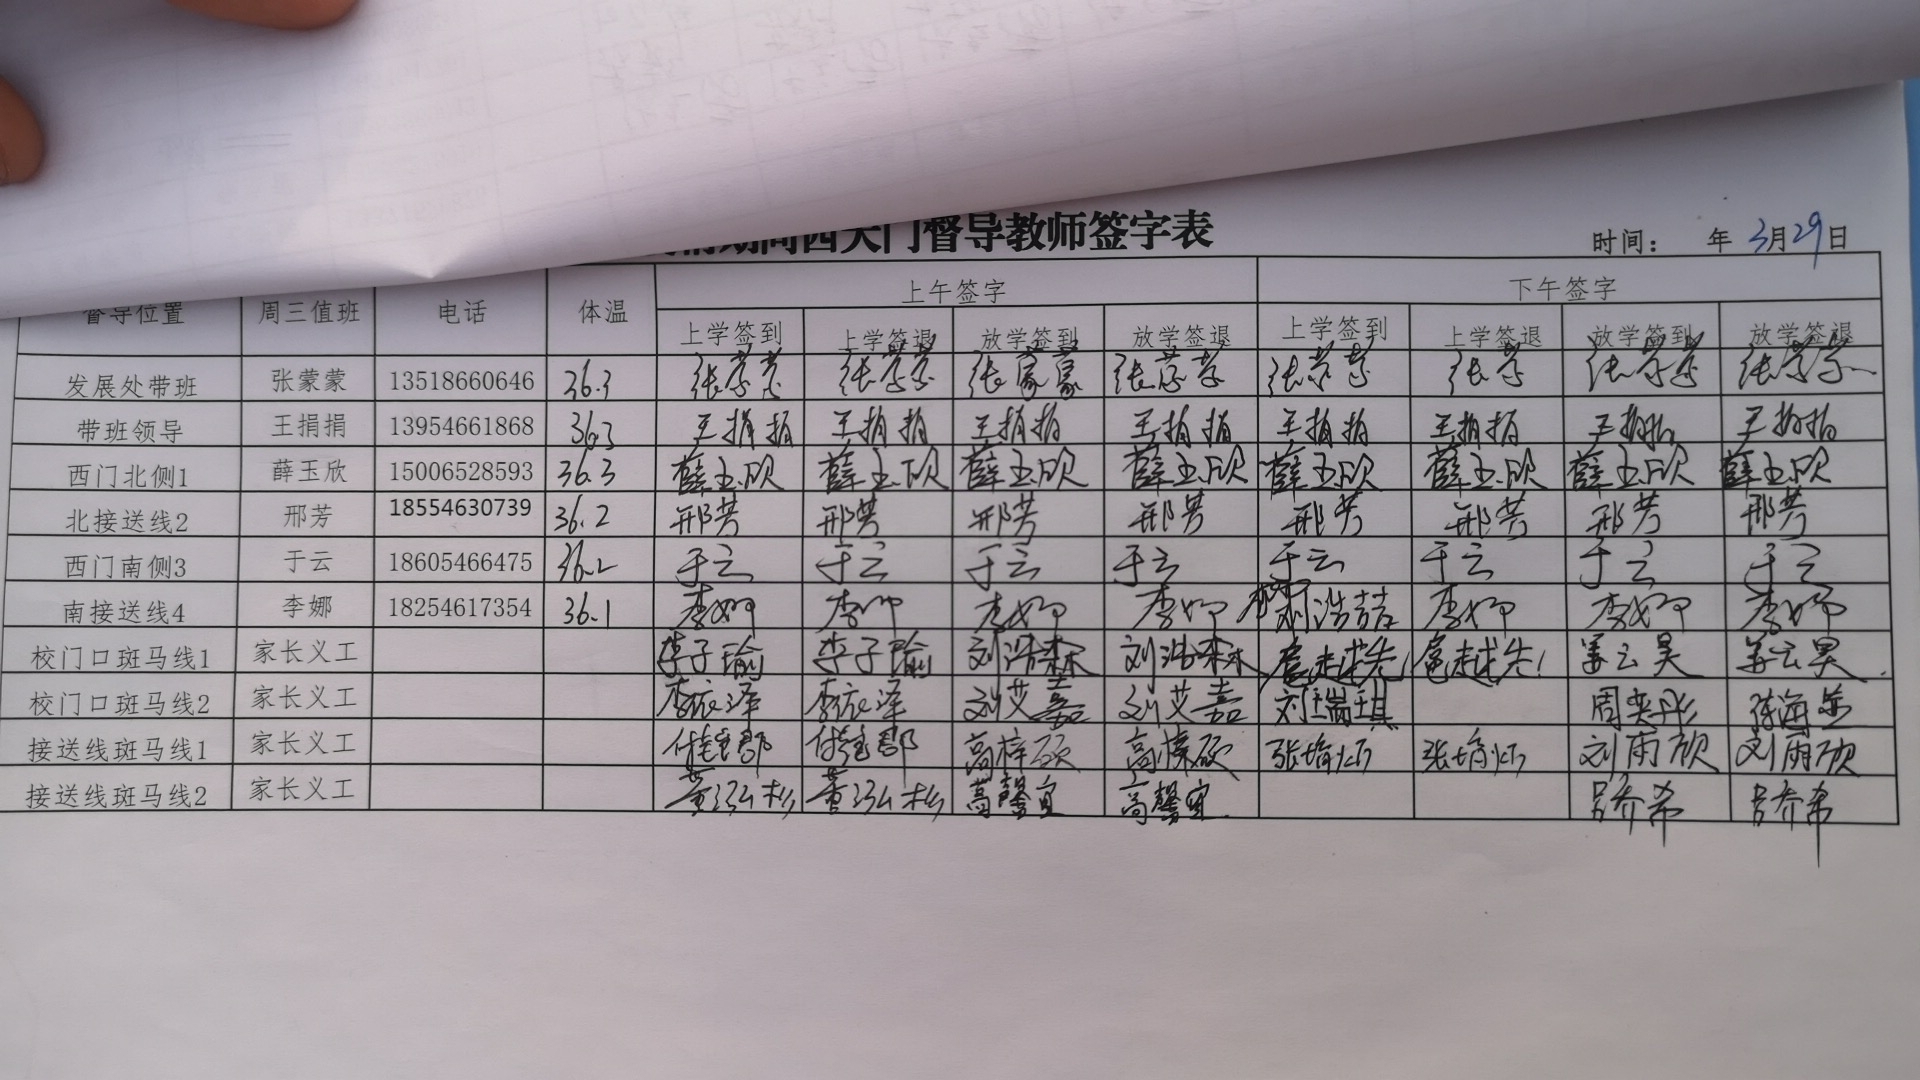 期间西大门督导教师签字表
时间： 年 3月29日
督导位置 周三值班 电话 体温 上午签字 下午签字
上学签到 上学签退 放学签到 放学签退 上学签到 上学签退 放学签到 放学签退
发展处带班 张蒙蒙 13518660646 36.3 张蒙蒙 张蒙蒙 张蒙蒙 张蒙蒙 张蒙蒙 张蒙 张蒙蒙 张蒙蒙
带班领导 王捐捐 13954661868 36.3 王捐捐 王捐捐 王捐捐 王捐捐 王捐捐 王捐捐 王捐捐 王捐捐
西门北侧1 薛玉欣 15006528593 36.3 薛玉欣 薛玉欣 薛玉欣 薛玉欣 薛玉欣 薛玉欣 薛玉欣 薛玉欣
北接送线2 邢芳 18554630739 36.2 邢芳 邢芳 邢芳 邢芳 邢芳 邢芳 邢芳 邢芳
西门南侧3 于云 18605466475 36.2 于云 于云 于云 于云 于云 于云 于云 于云
南接送线4 李娜 18254617354 36.1 李娜 李娜 李娜 李娜 李娜 李娜 李娜
校门口斑马线1 家长义工 李子瑜 李子瑜 刘浩森 刘浩森 姜云昊 姜云昊
校门口斑马线2 家长义工 李宸泽 李宸泽 刘艾嘉 刘艾嘉 刘瑞琪 周奕彤
接送线斑马线1 家长义工 高梓硕 高梓硕 刘雨欣 刘雨欣
接送线斑马线2 家长义工 董泓杉 董泓杉 高馨宜 高馨宜 吕乔希 吕乔希